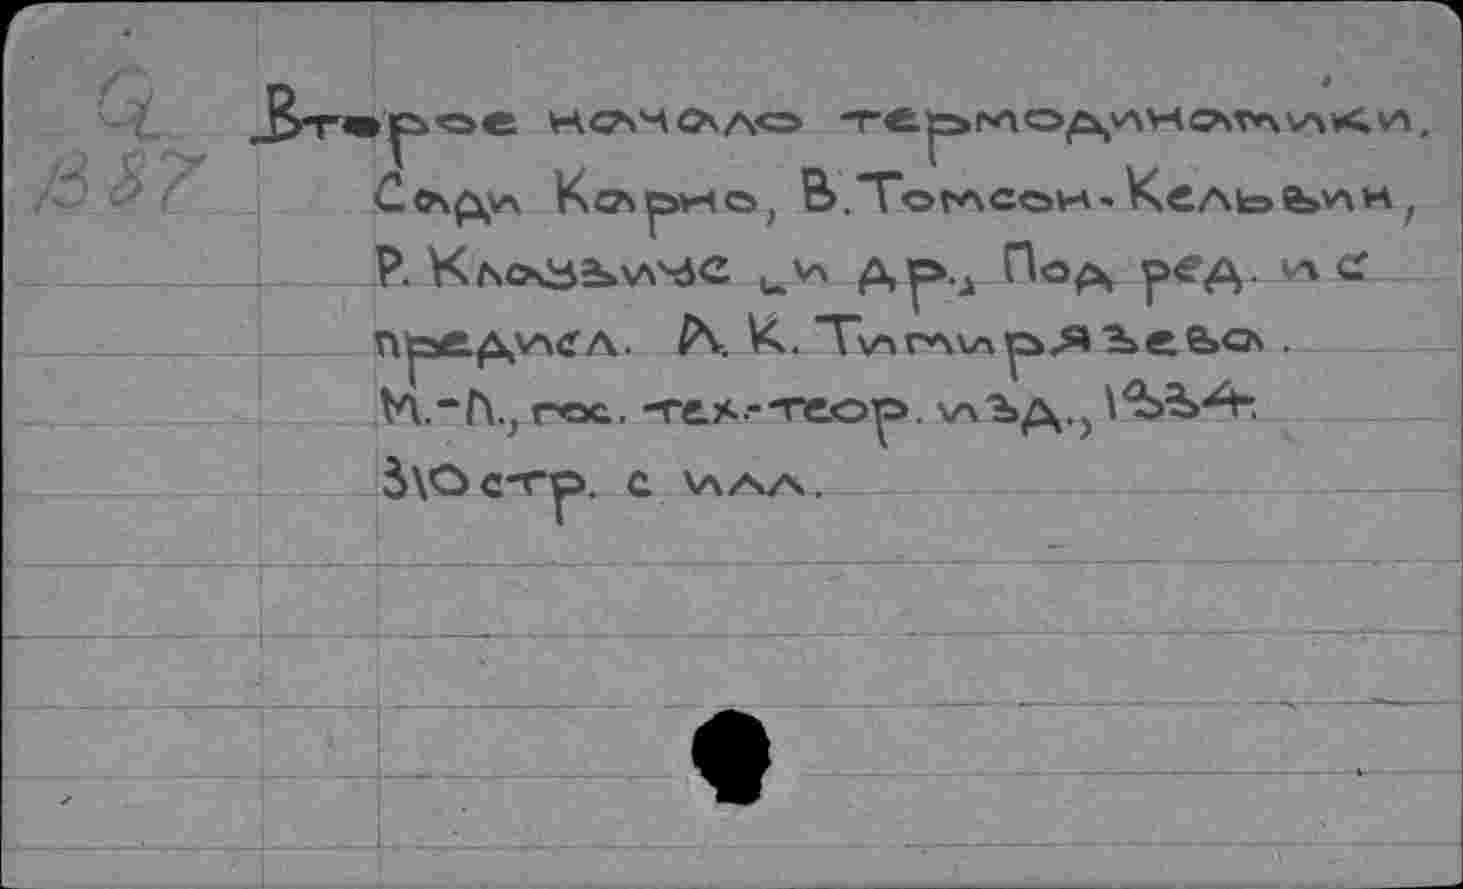 Второе начало термодинамики.
В87 Сади Карно, В. Томсон-Кельвин,
Р. Клаузиус и др. Под ред. и с
предисл. А. К. Тимирязева.
М.-Л., гос. тех.-теор. изд., 1934.
310 стр. с илл.